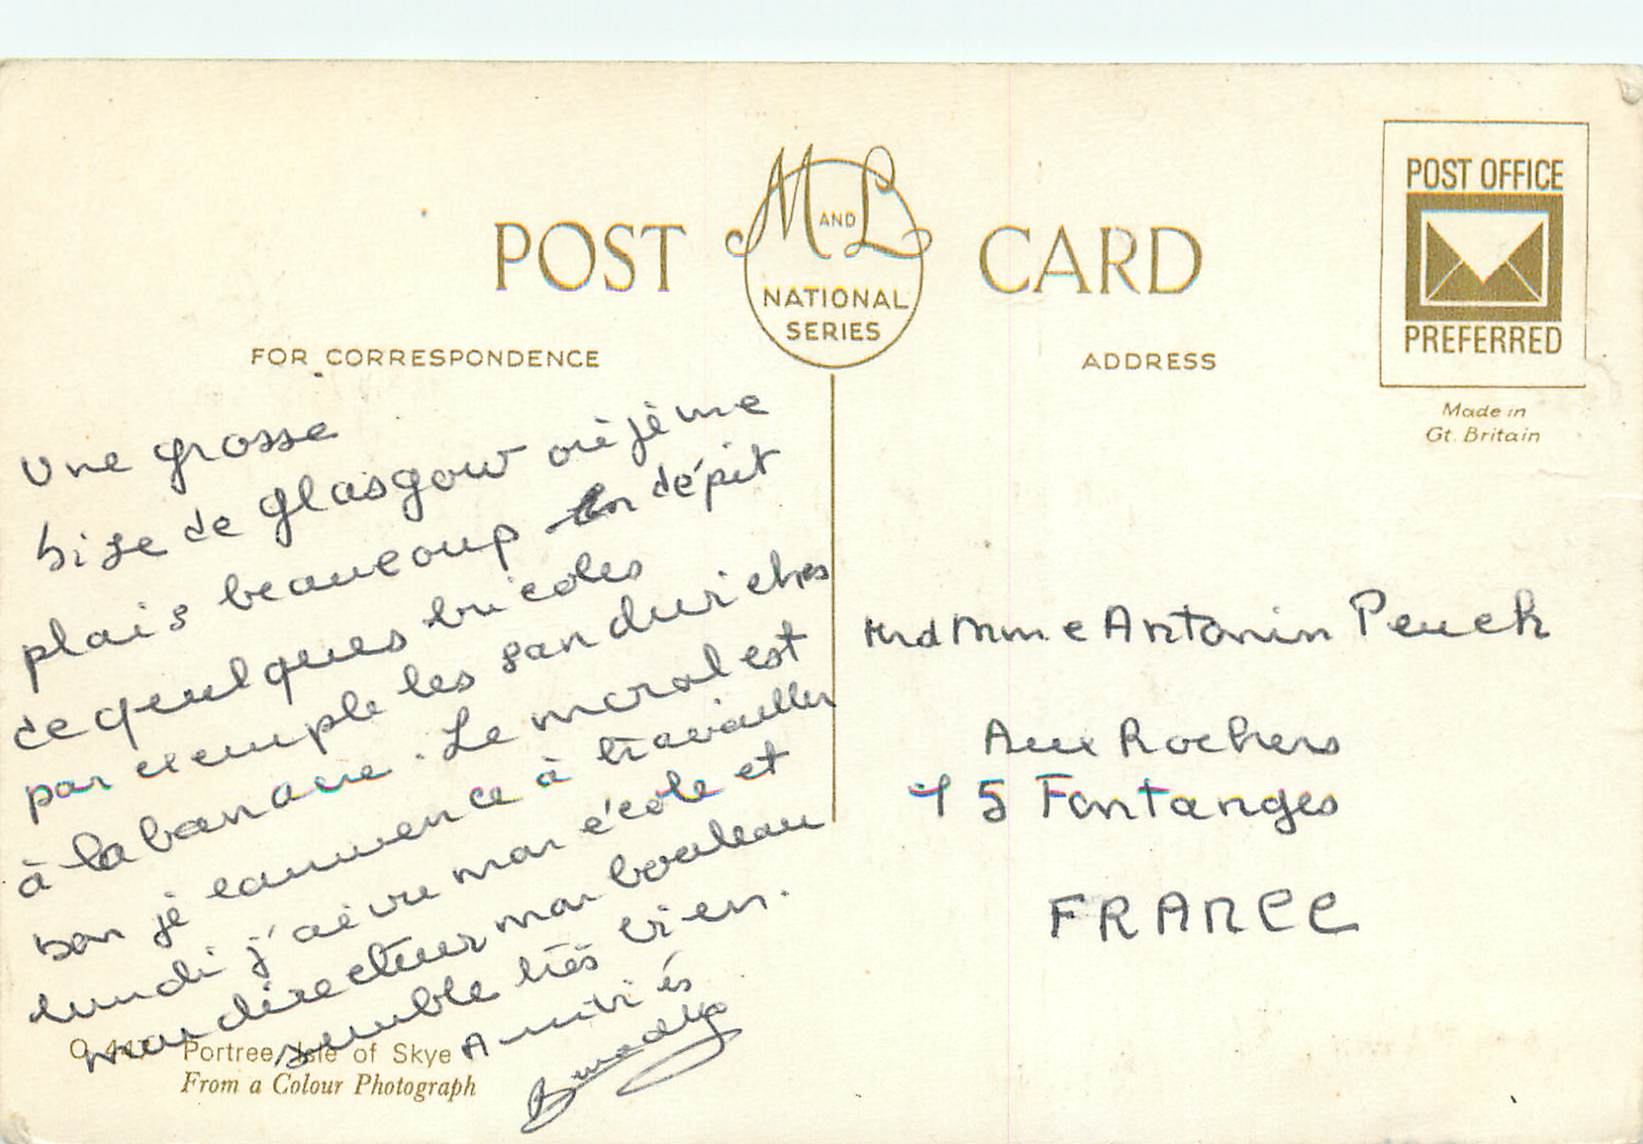 POST CARD
M AND L
NATIONAL
SERIES
FOR CORRESPONDENCE
ADDRESS
POST OFFICE
PREFERRED
Made in
Gt. Britain
Une grosse
bise de Glasgow où je me
plais beaucoup en dépit
de quelques bricoles
par exemple les sandwiches
à la banane. Le moral est
bon je commence à travailler
lundi j'ai vu mon école et
mon directeur mon bouleau
semble très bien.
Amitiés
Mr et Mme Antonin Peuch
Aux Rochers
15 Fontanges
FRANCE
Portree, Isle of Skye
From a Colour Photograph